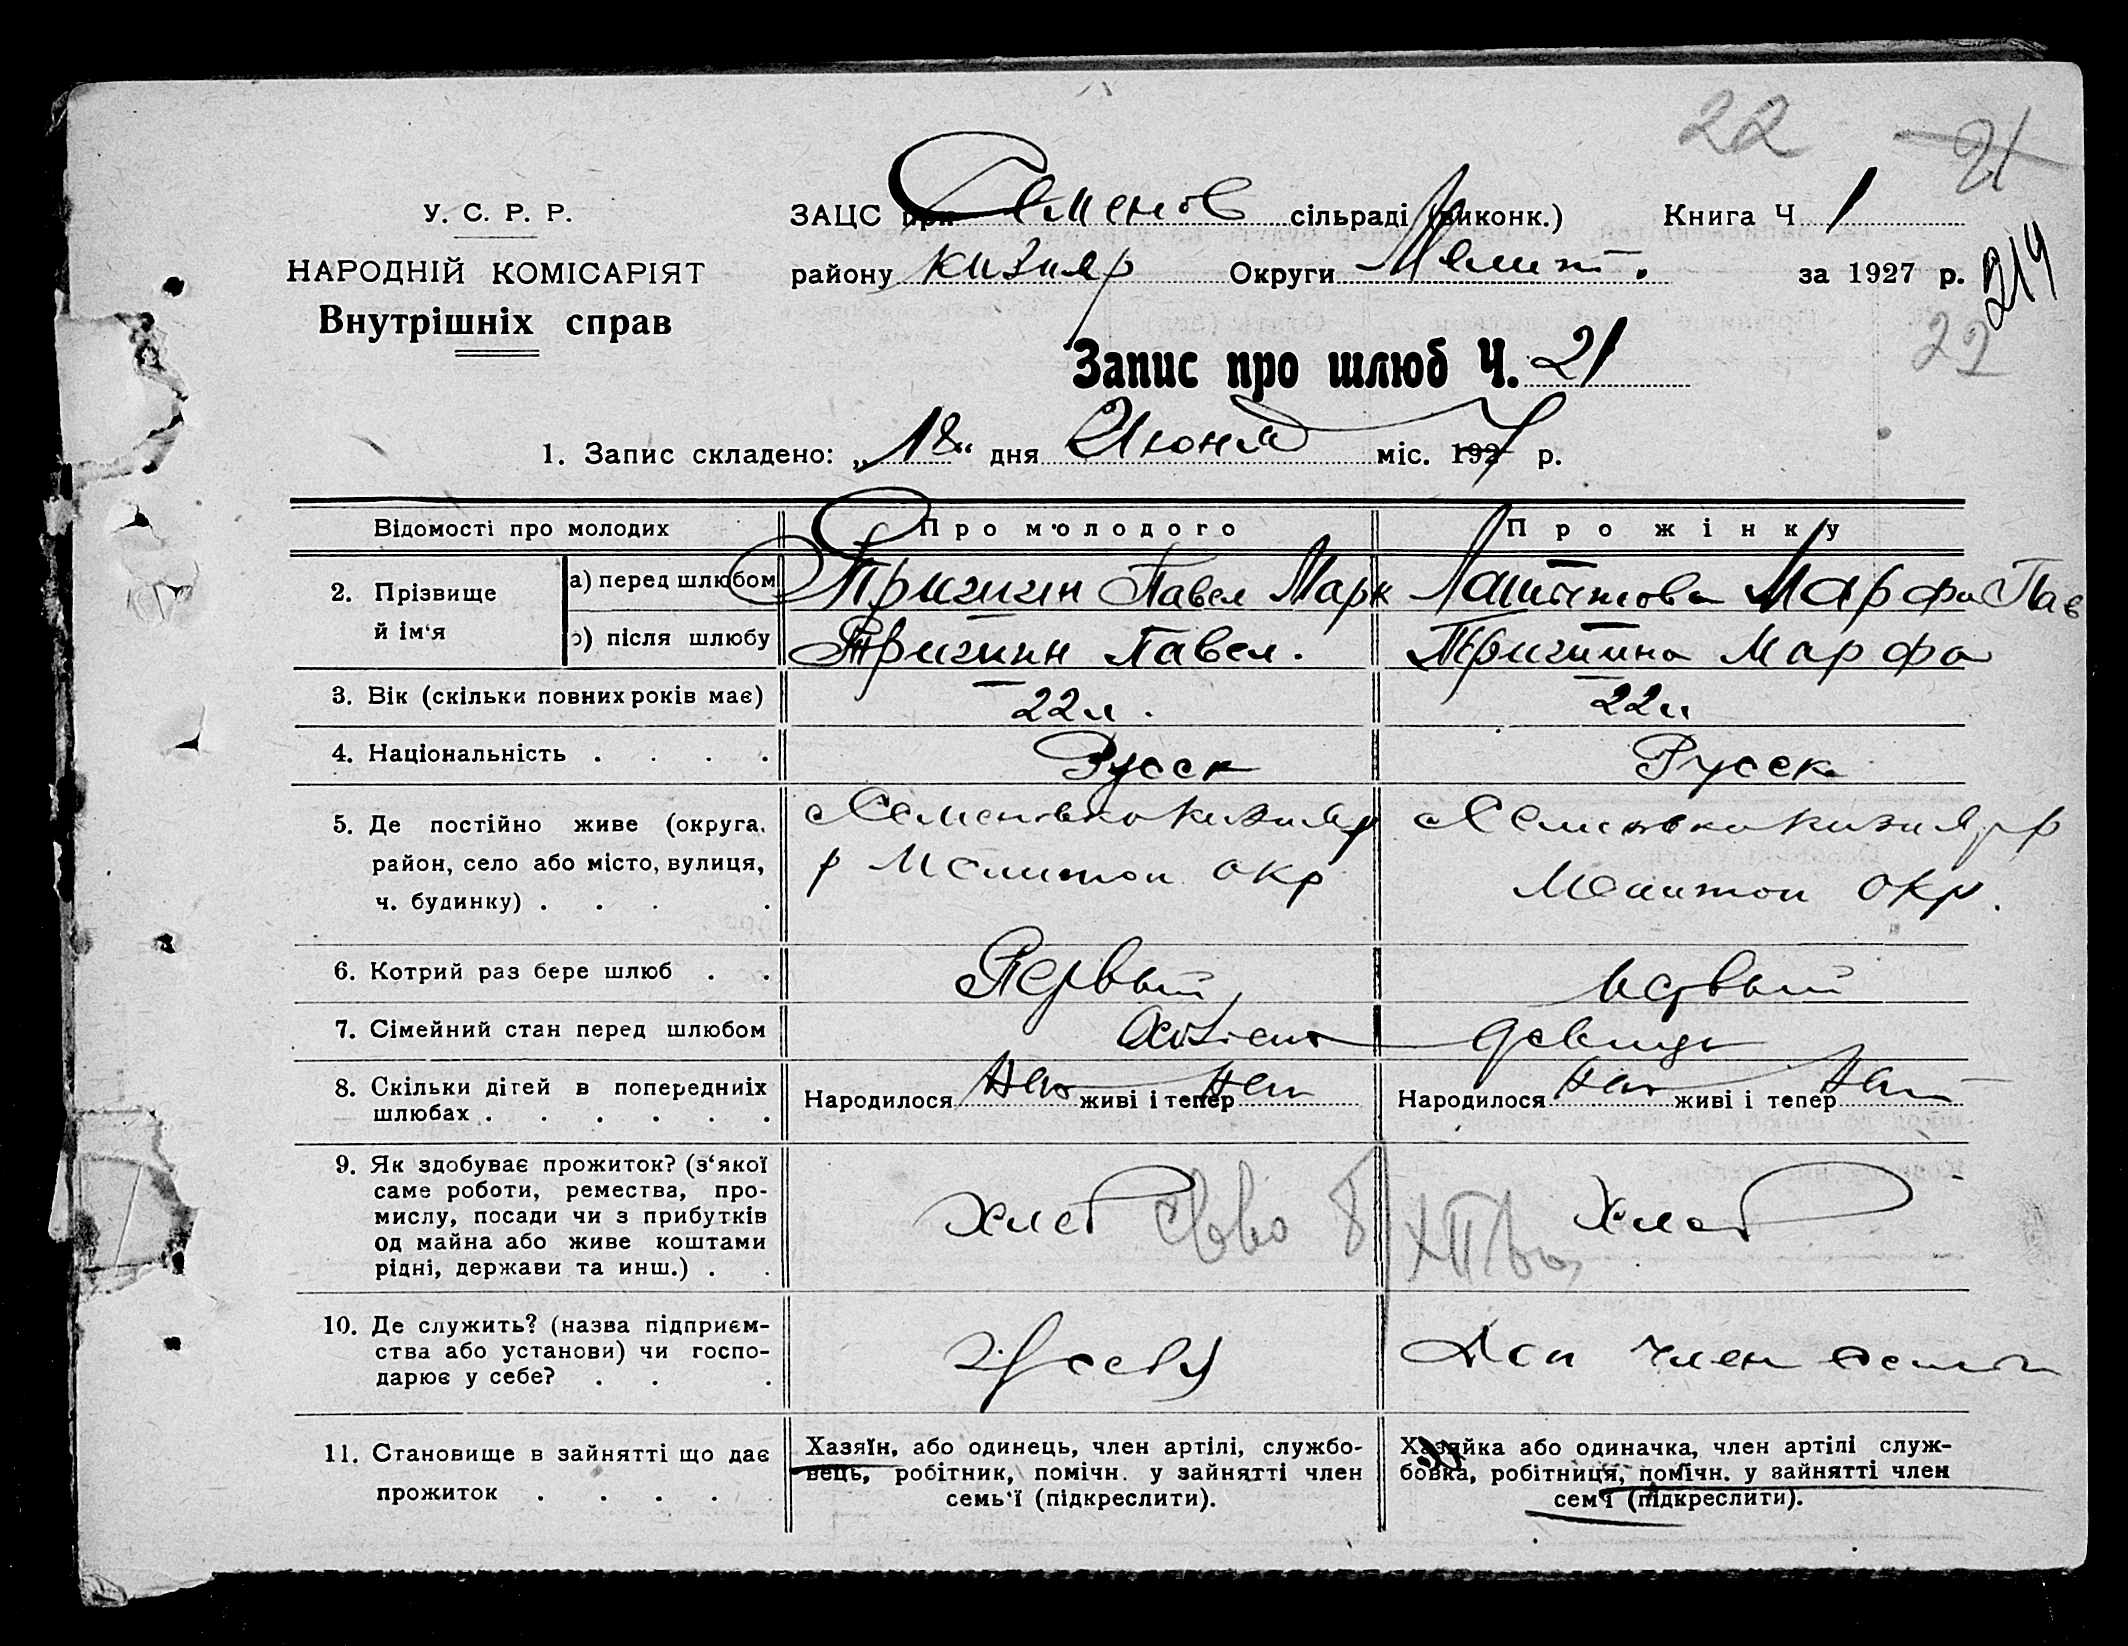 22 21
У. С. Р. Р.
НАРОДНІЙ КОМІСАРІЯТ
Внутрішніх справ
ЗАЦС при Семенов сільраді (виконк.) Книга Ч 1
району Кизияр Округи Мелит. за 1927 р.
214
22
Запис про шлюб Ч. 21
1. Запис складено: „18“ дня Июня міс. 1927 р.
Відомості про молодих Про молодого Про жінку
2. Прізвище й ім‘я
а) перед шлюбом Павел Марк Марфа Пав
б) після шлюбу Павел. Марфа
3. Вік (скільки повних років має) 22 л. 22 л
4. Національність . . . . Русск Русск
5. Де постійно живе (округа,
район, село або місто, вулиця,
ч. будинку) . . . .
р Мелитоп окр
Мелитоп окр.
6. Котрий раз бере шлюб . . Первый Первый
7. Сімейний стан перед шлюбом Холост девица
8. Скільки дітей в попередниіх
шлюбах . . . . . .
Народилося Нет живі і тепер Нет Народилося Нет живі і тепер Нет
9. Як здобуває прожиток? (з‘якої
саме роботи, ремества, про-
мислу, посади чи з прибутків
од майна або живе коштами
рідні, держави та инш.) . .
Хлеб Хлеб
10. Де служить? (назва підприєм-
ства або установи) чи госпо-
дарює у себе? . . .
У себя
член
11. Становище в зайнятті що дає
прожиток . . . .
Хазяїн, або одинець, член артілі, службо-
вець, робітник, помічн. у зайнятті член
семь‘ї (підкреслити).
Хазяйка або одиначка, член артілі служ-
бовка, робітниця, помічн. у зайнятті член
сем‘ї (підкреслити).